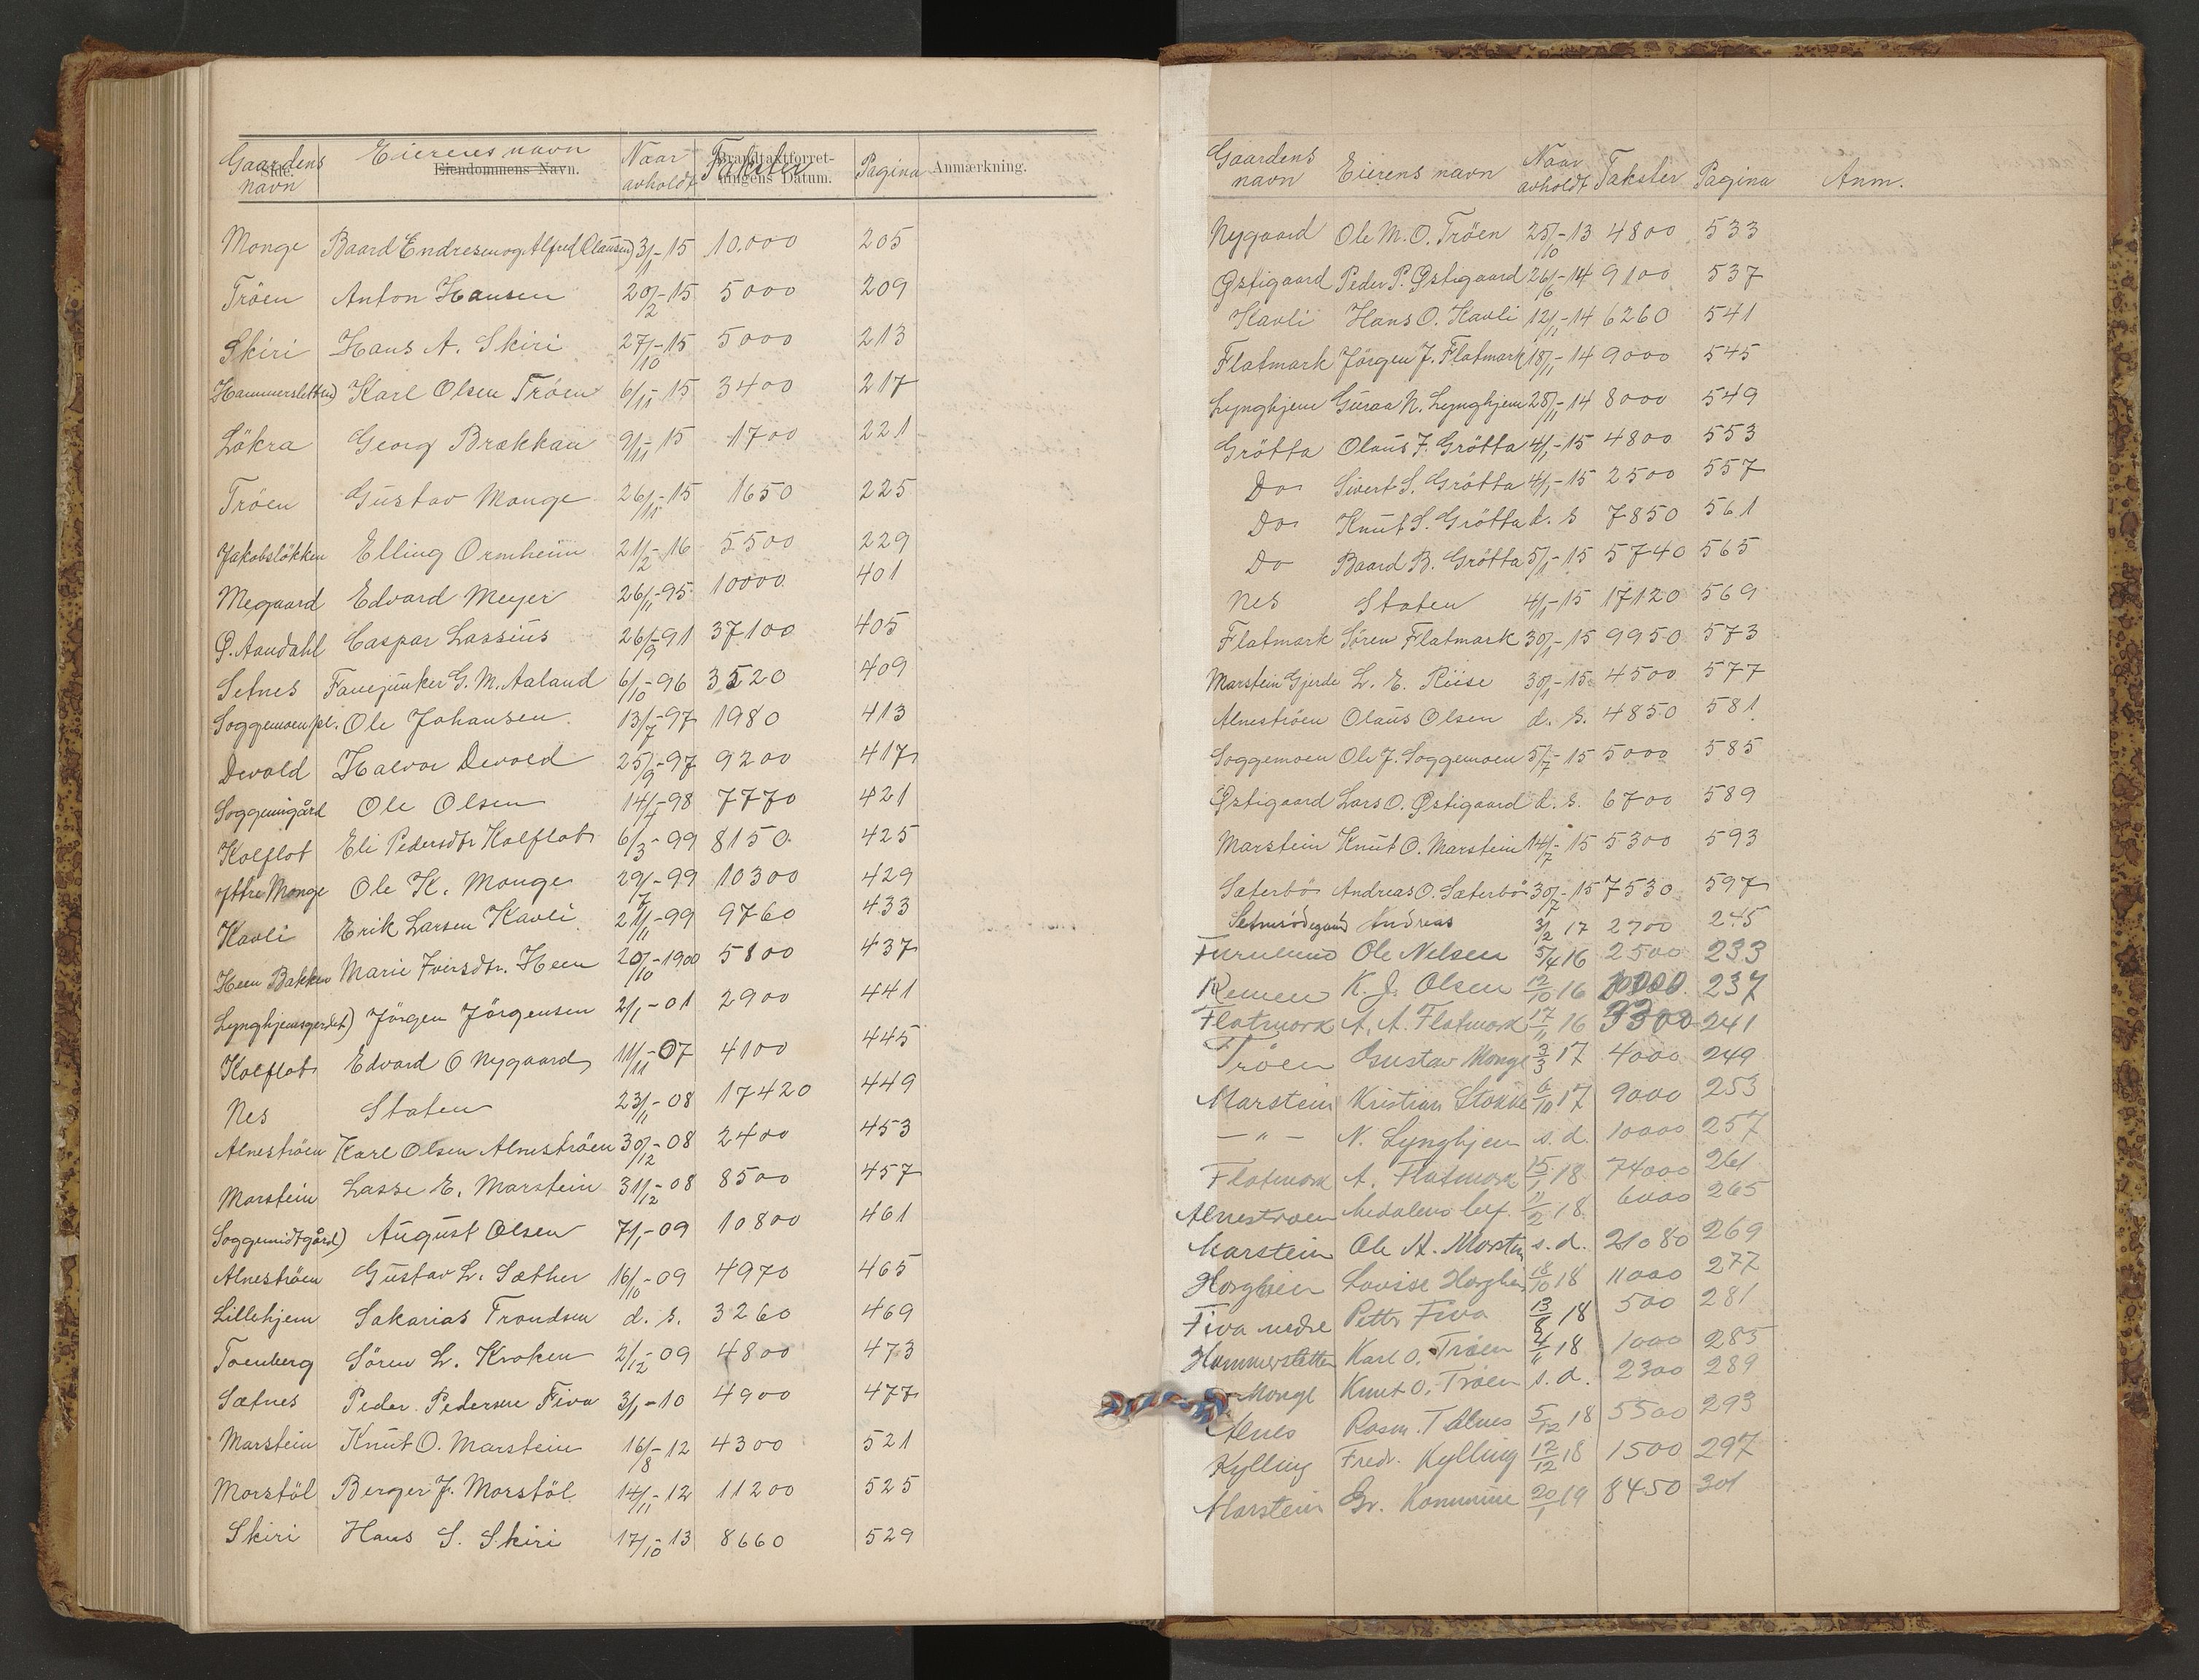 Gaardens navn Eierens navn Naar avholdt Takster Pagina Anmærkning.
Side. Eiendommens Navn. Brandtaktforretningens Datum.
Monge Baard Endresen og Alfred Clausen) 3/1-15 10.000 205
Tröen Anton Hansen 20/2-15 5000 209
Skiri Hans A. Skiri 27/10-15 5000 213
Hammersletten) Karl Olsen Tröen 6/11-15 3400 217
Lökra Georg Brækkan 9/11-15 1700 221
Tröen Gustav Monge 26/11-15 1650 225
Jakobslökken Elling Ormheim 21/2-16 5500 229
Megaard Edvard Meyer 26/11-95 10000 401
Ø. Aandahl Caspar Lassius 26/9-91 37100 405
Setnes Fanejunker G. M. Aaland 6/10-96 3520 409
Soggemoen pl. Ole Johansen 13/7-97 1980 413
Devold Halvor Devold 25/9-97 9200 417
Soggemigård Ole Olsen 14/7-98 7770 421
Kolflot Eli Pedersdtr Kolflot 6/3-99 8150 425
Yttre Monge Ole K. Monge 29/7-99 10300 429
Kavli Erik Larsen Kavli 21/11-99 9760 433
Heen Bakken Marie Iversdtr. Heen 20/10-1900 5800 437
Lynghjemsgerdet) Jörgen Jörgensen 2/1-01 2900 441
Kolflot Edvard O Nygaard 11/11-07 4100 445
Nes Staten 23/1-08 17420 449
Alneströen Karl Olsen Alneströen 30/12-08 2400 453
Marstein Lasse E. Marstein 31/12-08 8500 457
Soggemidtgård) August Olsen 7/1-09 10800 461
Alneströen Gustav L. Sæther 16/10-09 4970 465
Lillehjem Sakarias Trondsen d. s. 3260 469
Toenberg Sören L. Kroken 2/12-09 4800 473
Sætnes Peder Pedersen Fiva 3/1-10 4900 477
Marstein Knut O. Marstein 16/8-12 4300 521
Morstöl Berger J. Morstöl 14/11-12 11200 525
Skiri Hans S. Skiri 17/10-13 8660 529
Gaardens navn Eierens navn Naar avholdt Takster Pagina Anm.
Nygaard Ole M. O. Tröen 25/10-13 4800 533
Østigaard Peder P. Østigaard 26/6-14 9100 537
Kavli Hans O. Kavli 12/11-14 6260 541
Flatmark Jörgen J. Flatmark 18/11-14 9000 545
Lynghjem Guraa N. Lynghjem 28/11-14 8000 549
Grötta Olaus F. Grötta 4/1-15 4800 553
Do Sivert S. Grötta 4/1-15 2500 557
Do Knut S. Grötta d. s 7850 561
Do Baard B. Grötta 5/1-15 5740 565
Nes Staten 4/1-15 17120 569
Flatmark Sören Flatmark 30/1-15 9950 573
Marstein Gjerde L. E. Riise 30/1-15 4500 577
Alneströen Olaus Olsen d. s. 4850 581
Soggemoen Ole J. Soggemoen 5/7-15 5000 585
Østigaard Lars O. Østigaard d. s. 6700 589
Marstein Knut O. Marstein 14/7-15 5300 593
Sæterbö Andreas O. Sæterbö 30/7-15 7530 597
Andreas 3/2 17 2700 245
Furulund Ole Nelsen 5/4 16 2500 233
Remen K. J. Olsen 12/10 16 237
Flatmark A. A. Flatmark 17/11 16 3300 241
Tröen Gustav Monge 3/3 17 4000 249
Marstein Kristian Stokke 6/10 17 9000 253
— " — N. Lynghjem s. d. 10000 257
Flatmark A. Flatmark 15/1 18 74000 261
Alnestroen 11/2 18 6000 265
Marstein Ole H. Marstein s. d. 21080 269
Horgheim Lovise Horgheim 18/10 18 11000 277
Fiva nedre Petter Fiva 13/8 18 500 281
Hammerstetten Karl O. Tröen 4/11 18 1000 285
Monge Knut O. Tröen s. d. 2300 289
Alnes Rasm. T Alnes 5/12 18 5500 293
Kylling Fredr. Kylling 12/12 18 1500 297
Marstein Gr. Kommune 20/1 19 8450 301